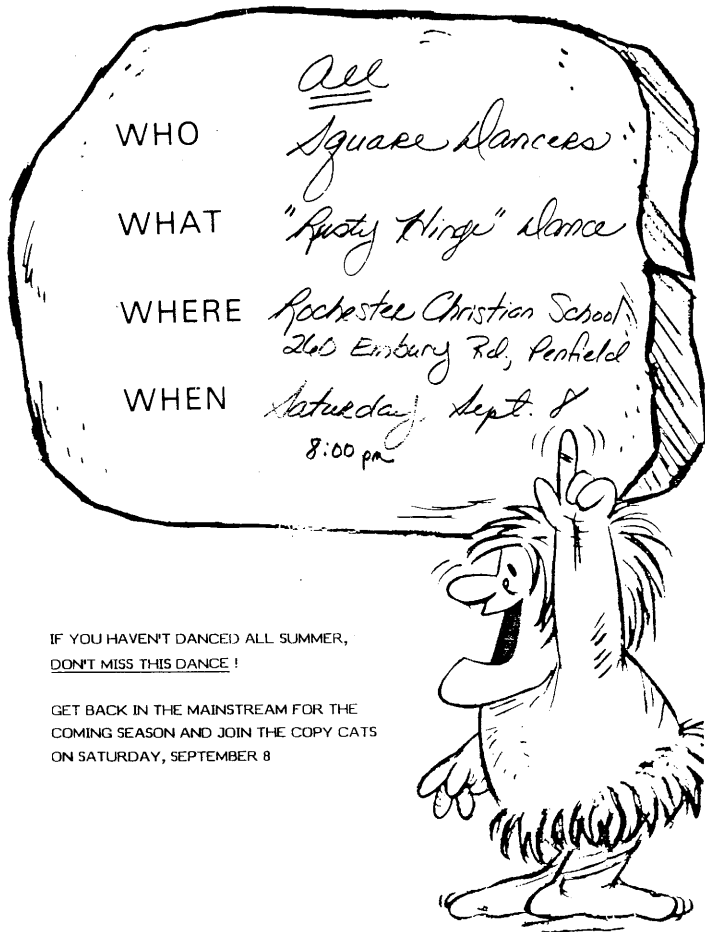 All
WHO Square Dancers
WHAT "Rusty Hinge" Dance
WHERE Rochester Christian School
260 Embury Rd, Penfield
WHEN Saturday Sept. 8
8:00 pm
IF YOU HAVEN'T DANCED ALL SUMMER,
DON'T MISS THIS DANCE !
GET BACK IN THE MAINSTREAM FOR THE
COMING SEASON AND JOIN THE COPY CATS
ON SATURDAY, SEPTEMBER 8